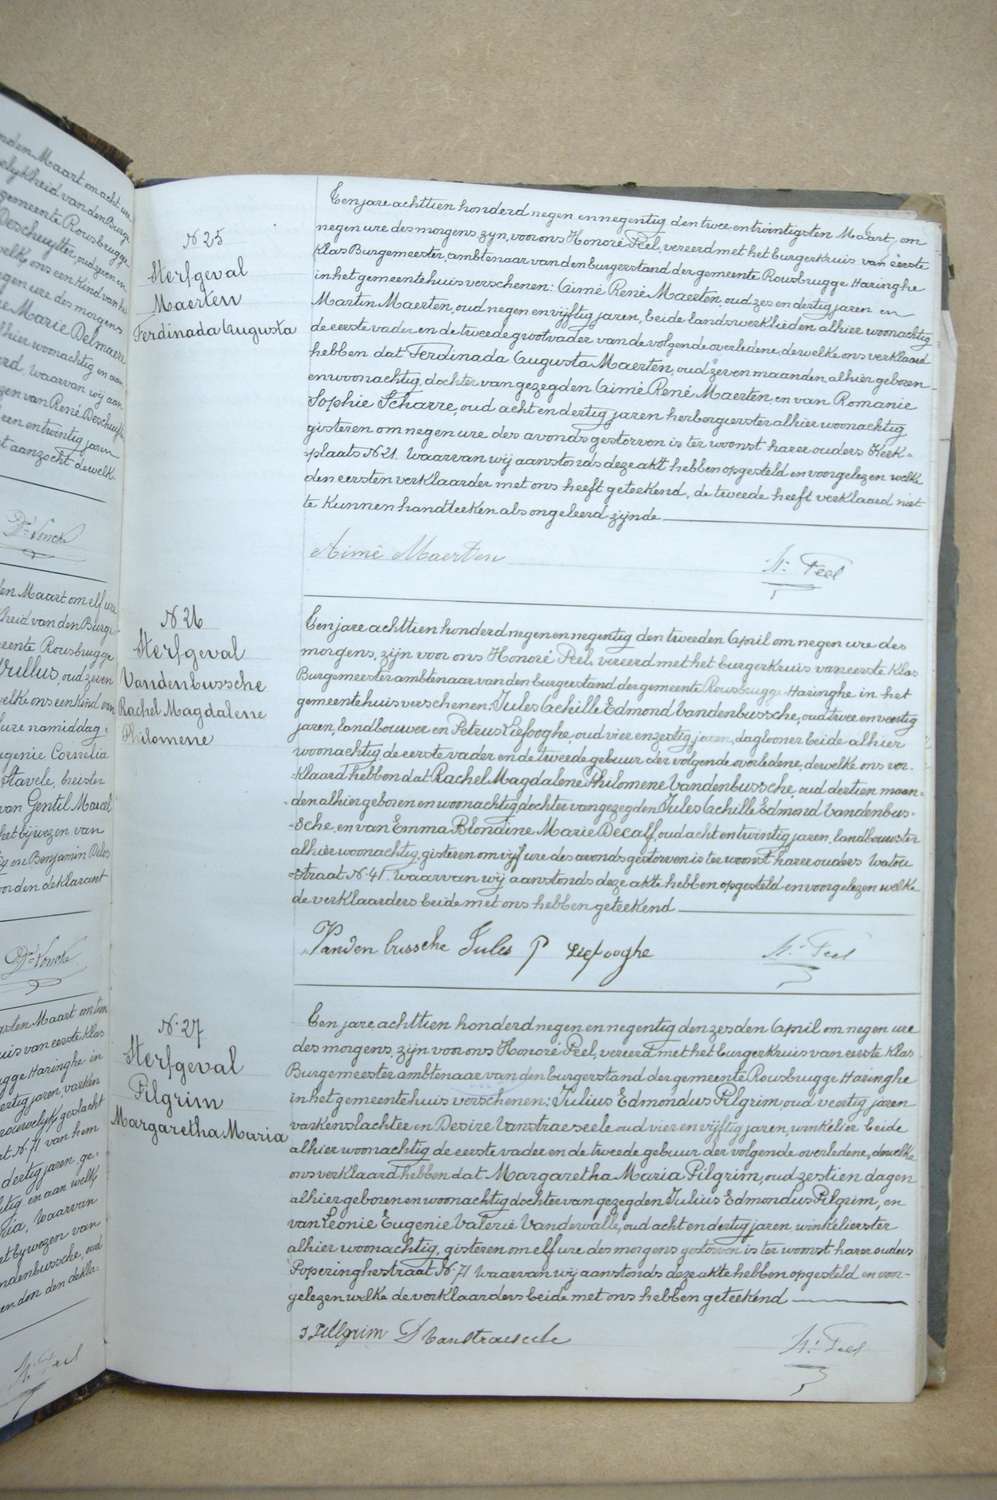 N 25
Sterfgeval
Maerten
Ferdinada Augusta
Ten jare achttien honderd negen en negentig den twee en twintigsten Maart, om
negen ure des morgens, zijn, voor ons Honoré Feel, vereerd met het burgerkruis van eerste
klas Burgemeester, ambtenaar van den burgerstand der gemeente Rousbrugge Haringhe
in het gemeentehuis verschenen: Aimé René Maerten, oud zes en dertig jaren en
Martin Maerten, oud negen en vijftig jaren, beide landswerklieden alhier woonachtig
de eerste vader en de tweede grootvader van de volgende overledene, dewelke ons verklaard
hebben dat Ferdinada Augusta Maerten, oud zeven maanden, alhier geboren
en woonachtig, dochter van gezegden Aimé René Maerten, en van Romanie
Sophie Scharre, oud acht en dertig jaren herbergierster alhier woonachtig
gisteren om negen ure des avonds gestorven is ter woonst harer ouders Kerk-
-plaats N 21. Waarvan wij aanstonds deze akt hebben opgesteld en voorgelezen welke
den eersten verklaarder met ons heeft geteekend, de tweede heeft verklaard niet
te kunnen handteeken als ongeleerd zijnde
Aimé Maerten H: Feel
N 26
Sterfgeval
Vandenbussche
Rachel Magdalene
Philomene
Ten jare achttien honderd negen en negentig den tweeden April om negen ure des
morgens, zijn voor ons Honoré Feel, vereerd met het burgerkruis van eerste klas
Burgemeester ambtenaar van den burgerstand der gemeente Rousbrugge Haringhe in het
gemeentehuis verschenen Jules Achille Edmond Vandenbussche, oud twee en veertig
jaren, landbouwer en Petrus Liefooghe, oud vier en zestig jaren, daglooner beide alhier
woonachtig de eerste vader en de tweede gebuur der volgende overledene, dewelke ons ver-
-klaard hebben dat Rachel Magdalene Philomene Vandenbussche, oud dertien maan-
-den alhier geboren en woonachtig dochter van gezegden Jules Achille Edmond Vandenbus-
-sche, en van Emma Blondine Marie Decalf, oud acht en twintig jaren, landbouwster
alhier woonachtig, gisteren om vijf ure des avonds gestorven is ter woonst harer ouders Watou
-straat N 41. Waarvan wij aanstonds deze akte hebben opgesteld en voorgelezen welke
de verklaarders beide met ons hebben geteekend
Vandenbussche Jules P Liefooghe H: Feel
N. 27
Sterfgeval
Pilgrim
Margaretha Maria
Ten jare achttien honderd negen en negentig den zesden April om negen ure
des morgens, zijn voor ons Honoré Feel, vereerd met het burgerkruis van eerste klas
Burgemeester ambtenaar van den burgerstand der gemeente Rousbrugge Haringhe
in het gemeentehuis verschenen: Julius Edmondus Pilgrim, oud veertig jaren
varkenslachter en Desire Vanstraeseele oud vier en vijftig jaren, winkelier beide
alhier woonachtig de eerste vader en de tweede gebuur der volgende overledene, dewelke
ons verklaard hebben dat Margaretha Maria Pilgrim, oud zestien dagen
alhier geboren en woonachtig dochter van gezegden Julius Edmondus Pilgrim, en
van Leonie Eugenie Valerie Vandewalle, oud acht en dertig jaren winkelierster
alhier woonachtig, gisteren om elf ure des morgens gestorven is ter woonst harer ouders
Poperinghestraat N. 71 Waarvan wij aanstonds deze akte hebben opgesteld en voor-
gelezen welke de verklaarders beide met ons hebben geteekend
J Pillgrim D Vanstraeseele H: Feel